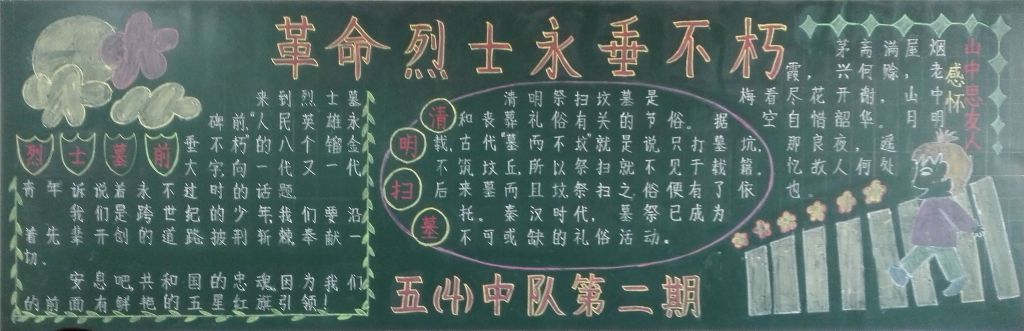 革命烈士永垂不朽
烈士墓前
来到烈士墓
碑前"人民英雄永
垂不朽"的八个镏金
大字向一代又一代
青年诉说着永不过时的话题。
我们是跨世纪的少年,我们要沿
着先辈开创的道路披荆斩棘奉献一
切。
安息吧,共和国的忠魂,因为我们
的前面有鲜艳的五星红旗引领!
清明扫墓
清明祭扫坟墓是
和丧葬礼俗有关的节俗。据
载,古代"墓而不坟",就是说只打墓坑,
不筑坟丘,所以祭扫就不见于载籍。
后来墓而且坟,祭扫之俗便有了依
托。秦汉时代,墓祭已成为
不可或缺的礼俗活动。
山中思友人
感怀
茅斋满屋烟
霞,兴何赊,老
梅看尽花开谢,山中
空自惜韶华。月明
良夜,遥
忆故人,那处
也。
五(4)中队第二期